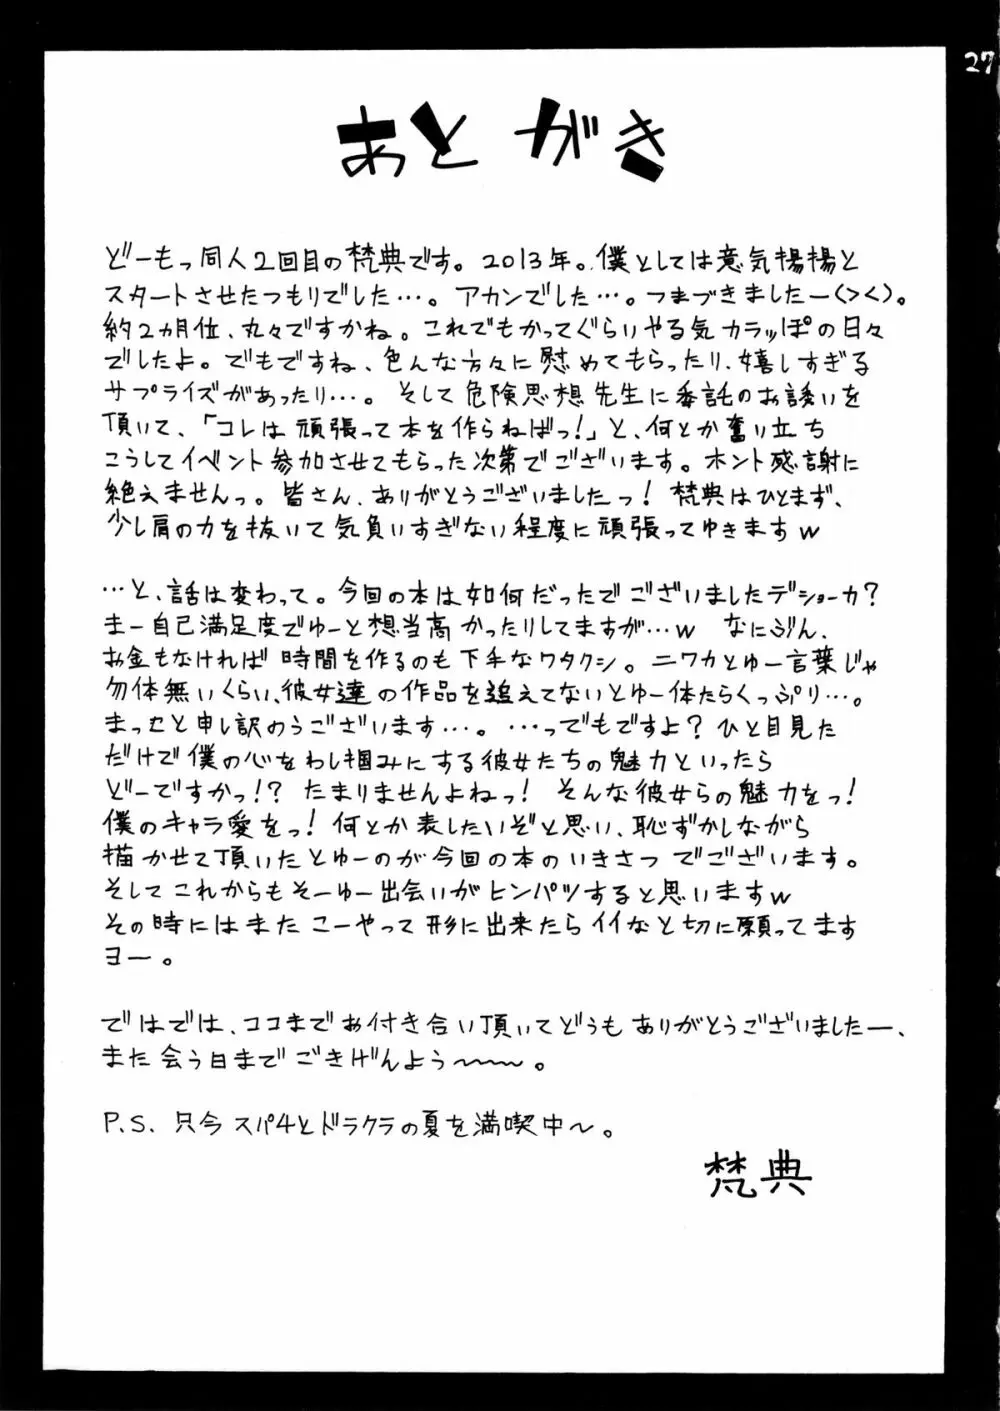 27
あとがき
どーもっ同人2回目の梵典です。2013年。僕としては意気揚揚と
スタートさせたつもりでした…。アカンでした…。つまづきましたー(>く)。
約2ヵ月位、丸々ですかね。これでもかってぐらいやる気カラッぽの日々
でしたよ。でもですね、色んな方々に慰めてもらったり、嬉しすぎる
サプライズがあったり…。そして危険思想先生に委託のお誘いを
頂いて、「コレは頑張って本を作らねばっ!」と、何とか奮い立ち
こうしてイベント参加させてもらった次第でございます。ホント感謝に
絶えませんっ。皆さん、ありがとうございましたっ!梵典はひとまず、
少し肩の力を抜いて気負いすぎない程度に頑張ってゆきますw
…と、話は変わって。今回の本は如何だったでございましたデショーカ?
まー自己満足度でゆーと想当高かったりしてますが…w なにぶん、
お金もなければ時間を作るのも下手なワタクシ。ニワカとゆー言葉じゃ
勿体無いくらい、彼女達の作品を追えてないとゆー体たらくっぷり…。
まっせと申し訳のうございます…。…ってでもですよ?ひと目見た
だけで僕の心をわし掴みにする彼女たちの魅力といったら
どーですかっ!?たまりませんよねっ!そんな彼女らの魅力をっ!
僕のキャラ愛をっ!何とか表したいぞと思い、恥ずかしながら
描かせて頂いたとゆーのが今回の本のいきさつでございます。
そしてこれからもそーゆー出会いがヒンパツすると思いますw
その時にはまたこーやって形に出来たらイイなと切に願ってます
ヨー。
ではでは、ココまでお付き合い頂いてどうもありがとうございましたー、
また会う日までごきげんよう〜〜。
P.S. 只今スパ4とドラクラの夏を満喫中〜。
梵典